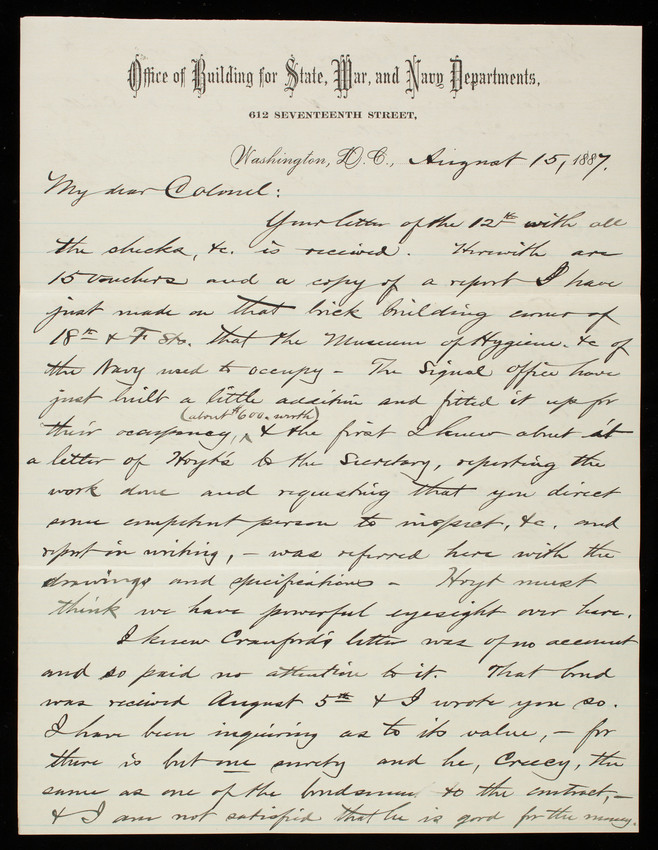 Office of Building for State, War, and Navy Departments,
612 SEVENTEENTH STREET,
Washington, D.C., August 15, 1887.
My dear Colonel:
Your letter of the 12th with all
the checks, &c. is received. Herewith are
15 vouchers and a copy of a report I have
just made on that brick building corner of
18th & F Sts. that the Museum of Hygiene &c of
the Navy used to occupy - The Signal Office have
just built a little addition and fitted it up for
(about $600. worth)
their occupancy, ^ & the first I knew about it
a letter of Hoyt's to the Secretary, reporting the
work done and requesting that you direct
some competent person to inspect, &c. and
report in writing, - was referred here with the
drawings and specifications - Hoyt must
think we have powerful eyesight over here.
I knew Cranford's letter was of no account
and so paid no attention to it. That bond
was received August 5th & I wrote you so.
I have been inquiring as to its value, - for
there is but one surety and he, Creecy, the
same as one of the bondsmen to the contract, -
& I am not satisfied that he is good for the money.